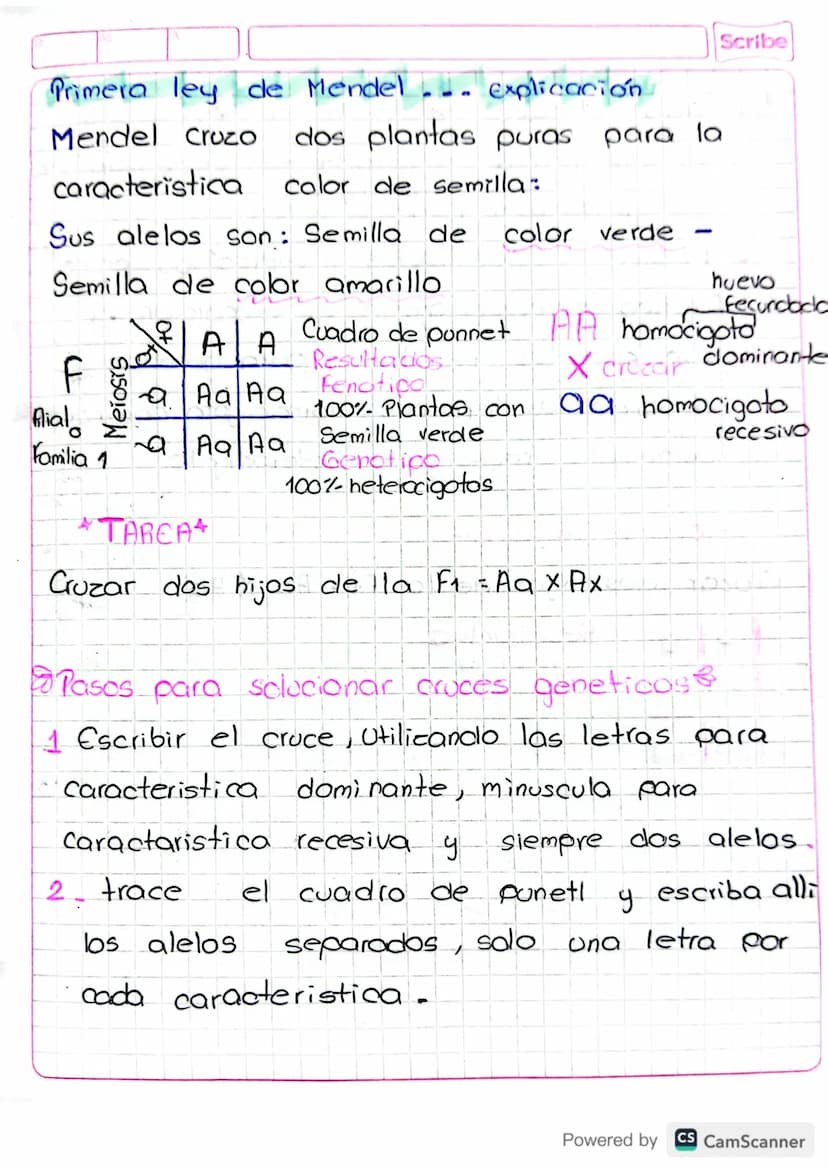 Scribe
Primera ley de Mendel... explicación
Mendel cruzo dos plantas puras para la
caracteristica color de semilla:
Sus alelos son: Semilla de color verde -
Semilla de color amarillo
huevo
fecundado
♂ ♀ A A
a Aa Aa
a Aa Aa
Meiosis
F
filial o
familia 1
Cuadro de ponnet
Resultados
Fenotipo
100% Plantas con
Semilla verde
Genotipo
100% heterocigotos
AA homocigoto
dominante
X cruzar
aa homocigoto
recesivo
*TAREA*
Cruzar dos hijos de lla F1 = Aa x Ax
Pasos para solucionar cruces geneticos
1 Escribir el cruce, Utilizando las letras para
caracteristica dominante, minuscula para
caractaristica recesiva y siempre dos alelos.
2. trace el cuadro de punetl y escriba alli
los alelos separados, solo una letra por
cada caracteristica.
Powered by CS CamScanner